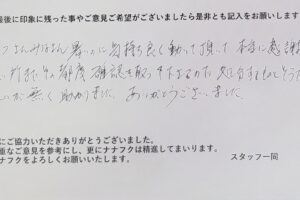 最後に印象に残った事やご意見ご希望がございましたら是非とも記入をお願いします
暑い中 気持ち良く動いて頂いて 本当に感謝
その都度 確認を取って下さるので
が無く助かりました。ありがとうございました。
にご協力いただきありがとうございました。
重なご意見を参考にし、更にナナフクは精進してまいります。
ナナフクをよろしくお願いいたします。
スタッフ一同